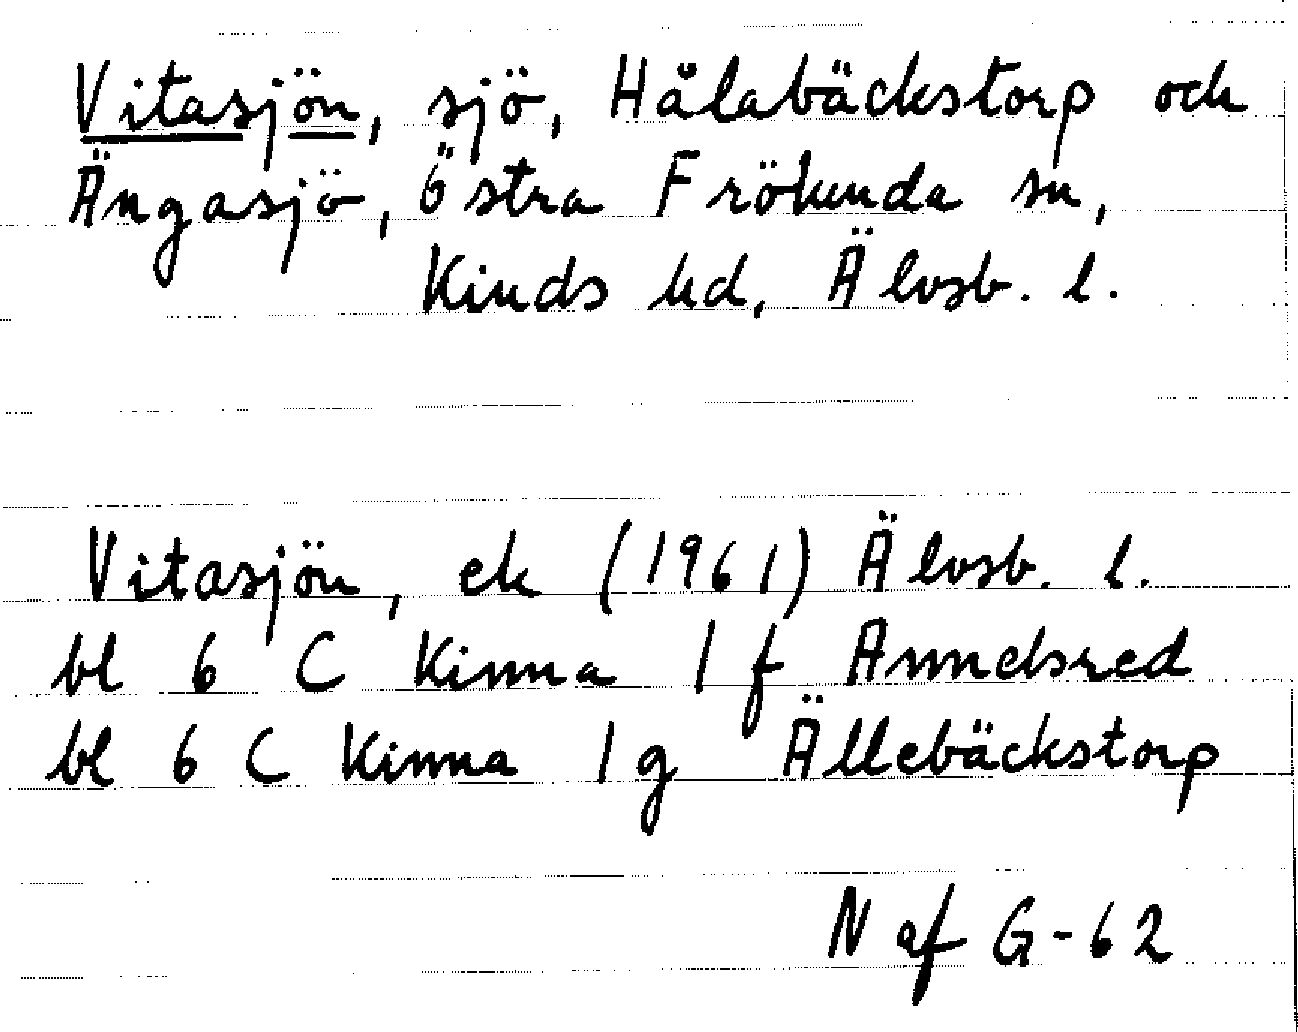 Vitasjön, sjö, Hålabäckstorp och
Ängasjö, Östra Frökunda sn,
Kinds hd, Älvsb. l.
Vitasjön, ek (1961) Älvsb. l.
bl 6 C Kinna 1 f Annelsred
bl 6 C Kinna 1 g Ällebäckstorp
N af G-62